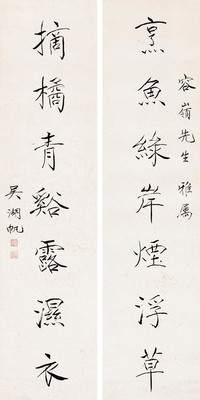 容嶺先生雅属
烹魚綠岸煙浮草
摘橘青谿露濕衣
吳湖帆